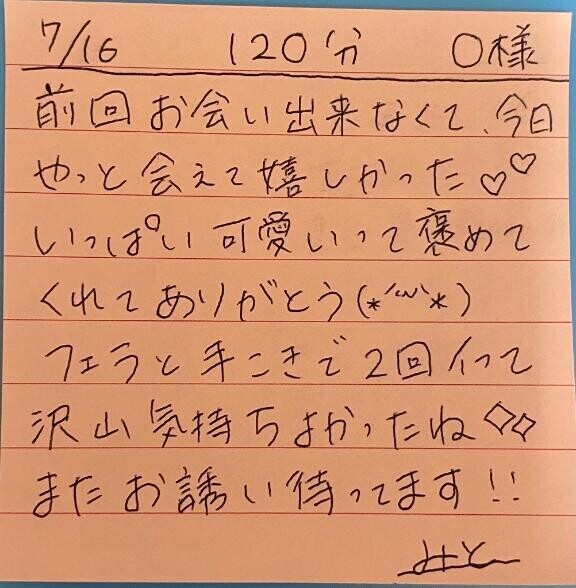 7/16 120分 O様
前回お会い出来なくて、今日
やっと会えて嬉しかった♡♡
いっぱい可愛いって褒めて
くれてありがとう(*´ω`*)
フェラと手こきで2回イって
沢山気持ちよかったね◇◇
またお誘い待ってます!!
みと